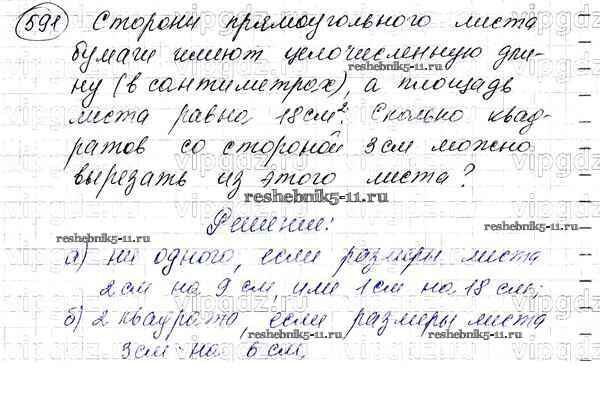 591 Стороны прямоугольного листа
бумаги имеют целочисленную дли-
ну (в сантиметрах), а площадь
листа равна 18см². Сколько квад-
ратов со стороной 3см можно
вырезать из этого листа?
reshebnik5-11.ru
Решение:
reshebnik5-11.ru
а) ни одного, если размеры листа
2см на 9 см, или 1см на 18 см;
б) 2 квадрата, если размеры листа
reshebnik5-11.ru
3см на 6 см.